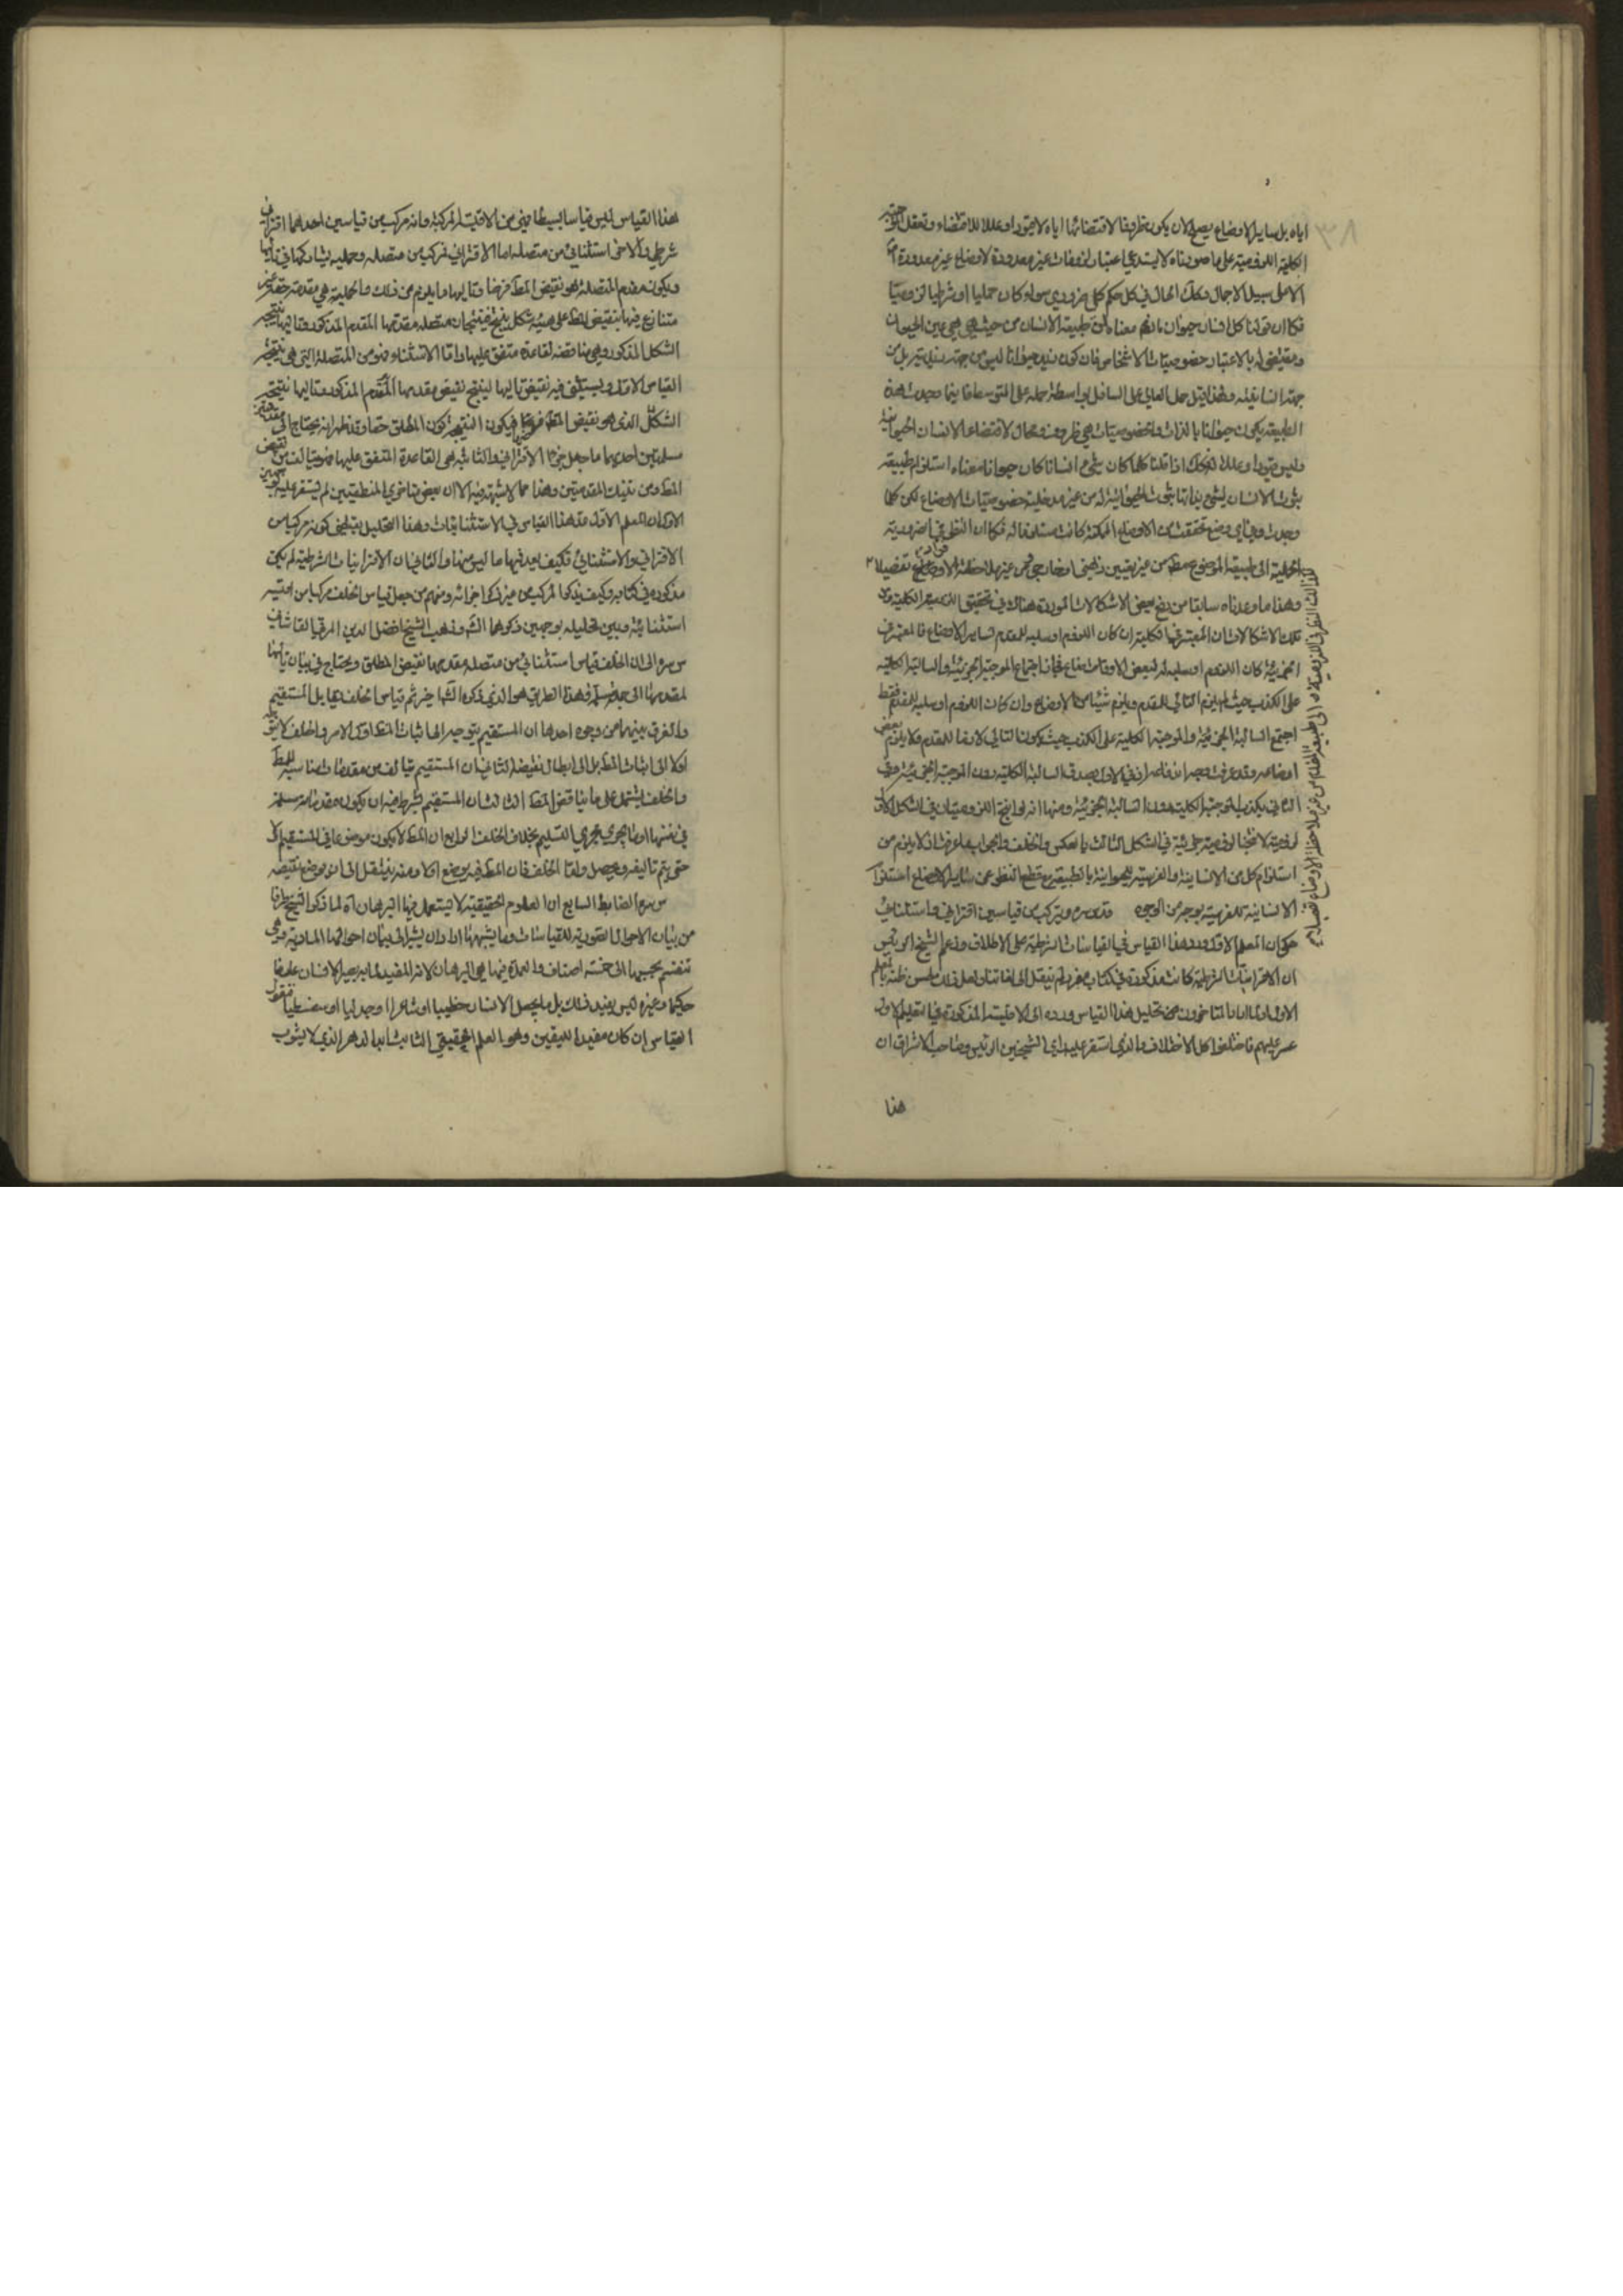 اياه بل ساير الاوضاع يصح لان يكون ظروفا لاقتضائها اياه لا قيودا وعللا للاقتضاء وتعقل الموجبة
الكلية اللزومية على ما صورناه لا يستدعي اعتبار لزومات غير معدودة لاوضاع غير معدودة
الا على سبيل الاجمال وكذلك الحال في كل حكم كلي ضروري سواء كان حمليا او شرطيا لزوميا
فكما ان قولنا كل انسان حيوان بالضرورة معناه ان طبيعة الانسان من حيث هي هي عين الحيوان
ومقتضى له بلا اعتبار خصوصيات الاشخاص فان كون زيد حيوانا ليس من جهة زيديته بل من
جهة انسانيته ولهذا قيل حمل العالي على السافل بواسطة حمله على المتوسط فاينما وجدت هذه
الطبيعة يكون حيوانا بالذات والخصوصيات هي ظروف ومحال لاقتضاء الانسان الحيوانية
وليس قيودا وعللا فكذلك اذا قلنا كلما كان شيء انسانا كان حيوانا معناه استلزام طبيعة
ثبوت الانسان لشيء بذاتها ثبوت الحيوانية له من غير مدخلية خصوصيات الاوضاع لكن كلما
وجدت وباي وضع تحققت من الاوضاع الممكنة كانت مستلزمة له فكما ان النظر في الضرورية
الحملية الى طبيعة الموضوع فقط من غير تعيين ذهني او خارجي ومن غير ملاحظة الاوضاع تفصيلا
كذلك النظر في اللزومية الى طبيعة المقدم من غير ملاحظة الاوضاع تفصيلا
وهذا ما وعدناه سابقا من دفع بعض الاشكالات الموردة هناك في تحقيق اللزومية الكلية ومن
تلك الاشكالات ان المعتبر في الكلية ان كان اللزوم او سلبه للمقدم لساير الاوضاع فالمعتبر في
الجزئية كان اللزوم او سلبه له لبعض الاوقات فجاز اجتماع الموجبة الجزئية والسالبة الكلية
على الكذب حيث لم يلزم التالي للمقدم ويلزم شيئا من الاوضاع وان كان اللزوم او سلبه للمقدم فقط
اجتمع السالبة الجزئية والموجبة الكلية على الكذب حيث يكون التالي لازما للمقدم ولا يلزم بعض
اوضاعه وقد عرفت وجه اندفاعه اذ في الاول يصدق السالبة الكلية دون الموجبة الجزئية وفي
الثاني يكذب الموجبة الكلية دون السالبة الجزئية ومنها انه لو انتج اللزوميتان في الشكل الاول
لزومية لانتجتا لزومية جزئية في الشكل الثالث بالعكس والخلف والجواب ما عرفت اذ لا يلزم من
استلزام كل من الانسانية والفرسية للحيوانية بالطبيعة مع قطع النظر عن ساير الاوضاع استلزام
الانسانية للفرسية بوجه من الوجوه قدس سره ويتركب من قياسين اقتراني واستثنائي
حكي ان المعلم الاول اورد هذا القياس في القياسات الشرطية على الاطلاق وزعم الشيخ الرئيس
ان الاقترانيات الشرطية كانت مذكورة في كتاب مفرد لم ينقل الى لغاتنا ولعل ذلك لحسن ظنه بالمعلم
الاول ولما اراد المتاخرون تحليل هذا القياس ورده الى الاقيسة المذكورة في التعليم الاول
عسر عليهم فاختلفوا كل الاختلاف والذي استقر عليه راي الشيخين الرئيس وصاحب الاشراق ان
هذا
هذا القياس ليس قياسا بسيطا فهي من الاقيسة المركبة وانه مركب من قياسين احدهما اقتراني
شرطي والاخر استثنائي من متصلة اما الاقتراني فمركب من متصلة وحملية يشاركها في تاليها
ويكون مقدم المتصلة هو نقيض المط فرضا وتاليها ما يلزم من ذلك والحملية هي مقدمة حقة غير
متنازع فيها بنقيض المط على هيئة شكل ينتج فينتجان متصلة مقدمها المقدم المذكور وتاليها نتيجة
الشكل المذكور وهي مناقضة لقاعدة متفق عليها واما الاستثناء فهو من المتصلة التي هي نتيجة
القياس الاول ويستثنى فيه نقيض تاليها لينتج نقيض مقدمها المقدم المذكور وتاليها نتيجة
الشكل الذي هو نقيض المط فرضا فيكون النتيجة كون المطلق حقا وقد ظهر انه يحتاج الى مقدمتين
مسلمتين احديهما ما جعل جزء الاقتراني والثانية هي القاعدة المتفق عليها فهو يتالف من نقيض
المط ومن تينك المقدمتين وهذا مما لا يشتبه فيه الا ان بعض متاخري المنطقيين لم يستقر عليه لوجهين
الاول ان المعلم الاول عد هذا القياس في الاستثنائيات وهذا التحليل يقتضي كونه مركبا من
الاقتراني والاستثنائي فكيف يعد فيها ما ليس منها والثاني ان الاقترانيات الشرطية لم يكن
مذكورة في كتابه وكيف يذكر المركب من غير ذكر اجزائه ومنهم من جعل قياس الخلف مركبا من اقيسة
استثنائية وبين تحليله بوجهين ذكرهما الشم وذهب الشيخ افضل الدين المرقي القاشاني
س سره الى ان الخلف قياس استثنائي من متصلة مقدمها نقيض المطلق ويحتاج في بيان تاليها
لمقدمها الى حملية مسلمة وهذا الطريق هو الذي ذكره الشم اخيرا ثم قياس الخلف يقابل المستقيم
والفرق بينهما من وجوه احدها ان المستقيم يتوجه الى اثبات المط اول الامر والخلف لا يتوجه
اولا الى اثبات المط بل الى ابطال نقيضه الثاني ان المستقيم يتالف من مقدمات مناسبة للمط
والخلف يشتمل على ما يناقض المط الثالث ان المستقيم يشترط فيه ان يكون مقدماته مسلمة
في نفسها او ما يجري مجرى التسليم بخلاف الخلف الرابع ان المط لا يكون موضوعا في المستقيم اولا
حتى يتم تاليفه ويحصل واما الخلف فان المط فيه يوضع اولا ومنه ينتقل الى ان يوضع نقيضه
س سره الضابط السابع ان العلوم الحقيقية لا يستعمل فيها الا البرهان اه لما ذكر الشيخ طرفا
من بيان الاحوال الصورية للقياسات وما يشبهها اراد ان يشير الى بيان احوالها المادية وهي
تنقسم بحسبها الى خمسة اصناف والعمدة فيها هي البرهان لانه المفيد لما به يصير الانسان عالما
حكيما وغيره ليس يفيد ذلك بل ما يجعل الانسان خطيبا او شاعرا او جدليا او سفسطيا فنقول
القياس ان كان مفيدا لليقين وهو العلم الحقيقي الثابت ابد الدهر الذي لا يشوب